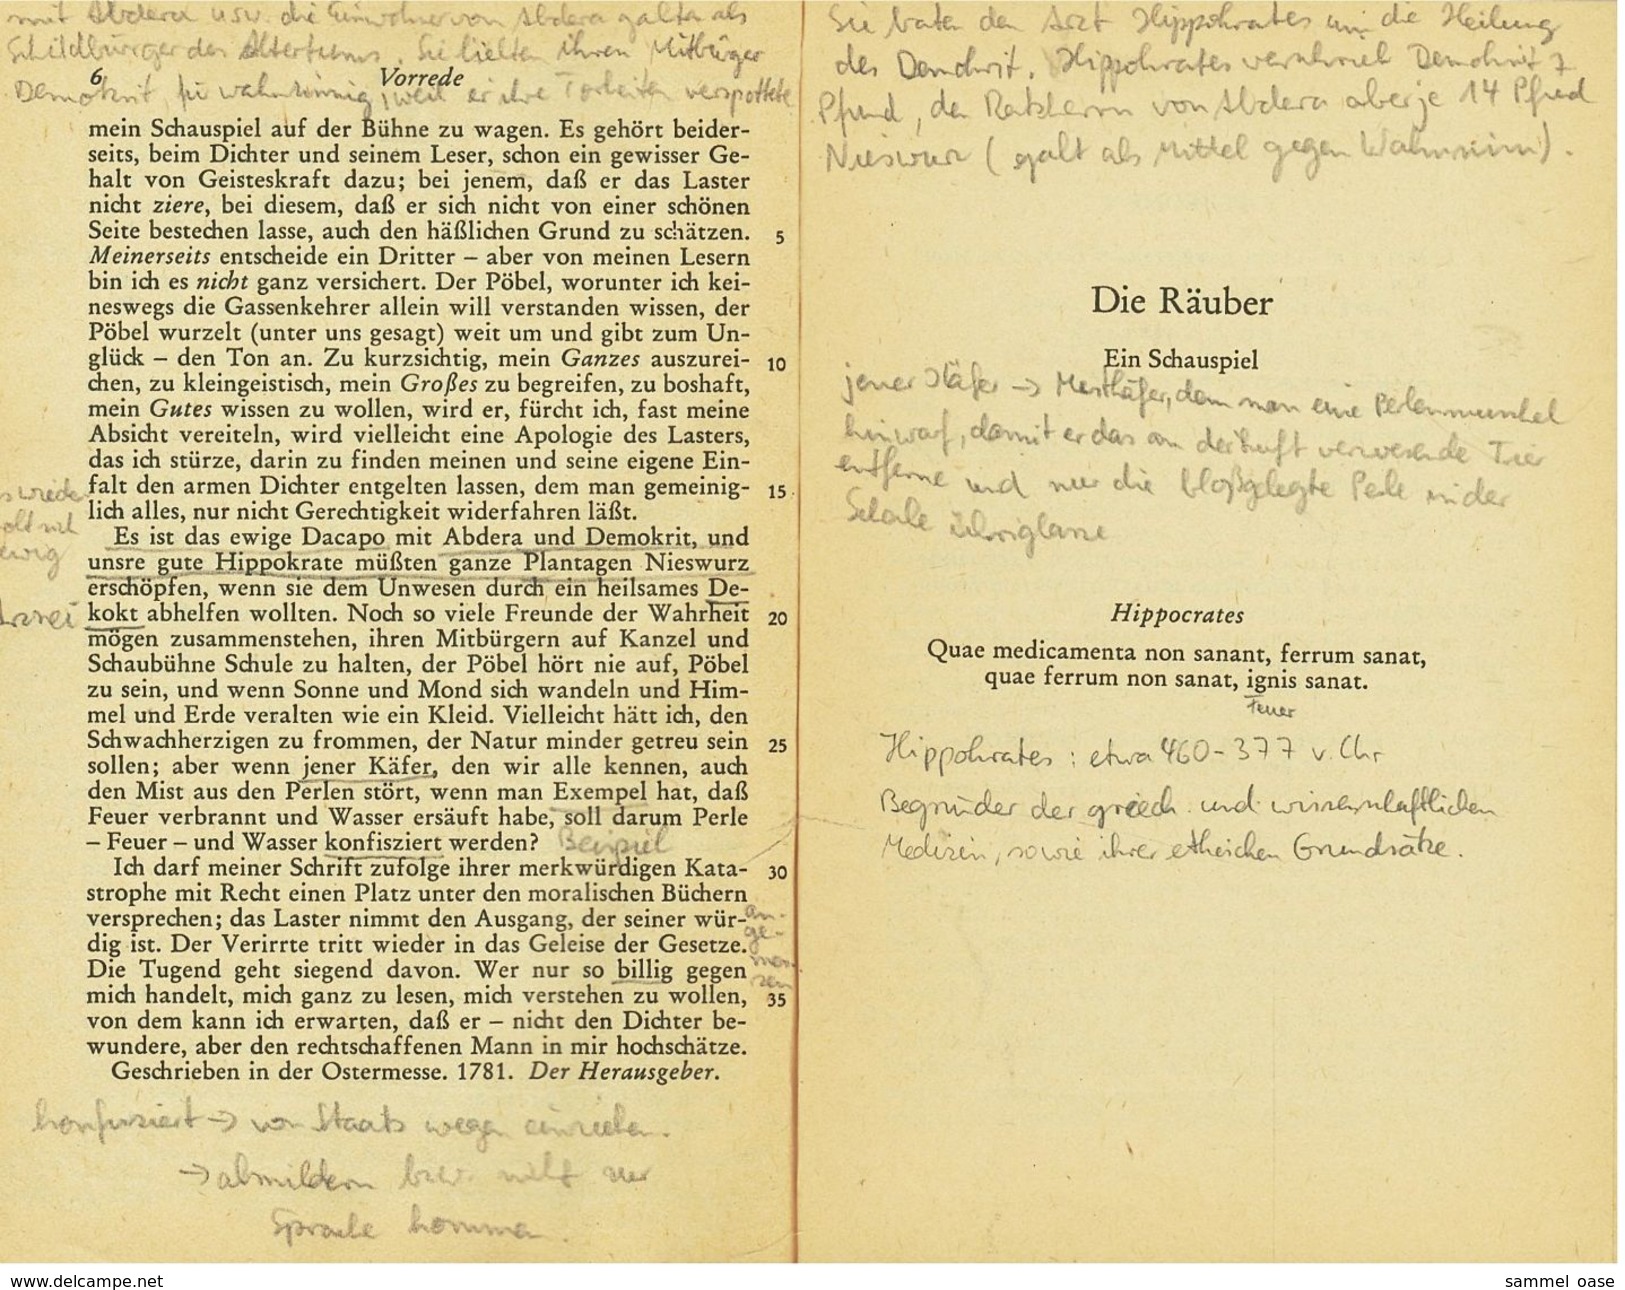 mit Abdera usw. die Einwohner von Abdera galten als
Schildbürger des Altertums. Sie hielten ihren Mitbürger
Demokrit für wahnsinnig, weil er ihre Torheiten verspottete
6
Vorrede
mein Schauspiel auf der Bühne zu wagen. Es gehört beider-
seits, beim Dichter und seinem Leser, schon ein gewisser Ge-
halt von Geisteskraft dazu; bei jenem, daß er das Laster
nicht ziere, bei diesem, daß er sich nicht von einer schönen
Seite bestechen lasse, auch den häßlichen Grund zu schätzen. 5
Meinerseits entscheide ein Dritter – aber von meinen Lesern
bin ich es nicht ganz versichert. Der Pöbel, worunter ich kei-
neswegs die Gassenkehrer allein will verstanden wissen, der
Pöbel wurzelt (unter uns gesagt) weit um und gibt zum Un-
glück – den Ton an. Zu kurzsichtig, mein Ganzes auszurei- 10
chen, zu kleingeistisch, mein Großes zu begreifen, zu boshaft,
mein Gutes wissen zu wollen, wird er, fürcht ich, fast meine
Absicht vereiteln, wird vielleicht eine Apologie des Lasters,
das ich stürze, darin zu finden meinen und seine eigene Ein-
falt den armen Dichter entgelten lassen, dem man gemeinig- 15
lich alles, nur nicht Gerechtigkeit widerfahren läßt.
Es ist das ewige Dacapo mit Abdera und Demokrit, und
unsre gute Hippokrate müßten ganze Plantagen Nieswurz
erschöpfen, wenn sie dem Unwesen durch ein heilsames De-
kokt abhelfen wollten. Noch so viele Freunde der Wahrheit 20
mögen zusammenstehen, ihren Mitbürgern auf Kanzel und
Schaubühne Schule zu halten, der Pöbel hört nie auf, Pöbel
zu sein, und wenn Sonne und Mond sich wandeln und Him-
mel und Erde veralten wie ein Kleid. Vielleicht hätt ich, den
Schwachherzigen zu frommen, der Natur minder getreu sein 25
sollen; aber wenn jener Käfer, den wir alle kennen, auch
den Mist aus den Perlen stört, wenn man Exempel hat, daß
Feuer verbrannt und Wasser ersäuft habe, soll darum Perle
– Feuer – und Wasser konfisziert werden? Beispiel
Ich darf meiner Schrift zufolge ihrer merkwürdigen Kata- 30
strophe mit Recht einen Platz unter den moralischen Büchern
versprechen; das Laster nimmt den Ausgang, der seiner wür-
dig ist. Der Verirrte tritt wieder in das Geleise der Gesetze.
Die Tugend geht siegend davon. Wer nur so billig gegen
mich handelt, mich ganz zu lesen, mich verstehen zu wollen, 35
von dem kann ich erwarten, daß er – nicht den Dichter be-
wundere, aber den rechtschaffenen Mann in mir hochschätze.
Geschrieben in der Ostermesse. 1781. Der Herausgeber.
an-
ge-
mes-
sen
ewig
Arznei
konfisziert → von Staats wegen einziehen.
→ abmildern bzw. nicht zur
Sprache kommen.
Sie baten den Arzt Hippokrates um die Heilung
des Demokrit. Hippokrates verschrieb Demokrit 7
Pfund, den Ratsherrn von Abdera aber je 14 Pfund
Nieswurz (galt als Mittel gegen Wahnsinn).
Die Räuber
Ein Schauspiel
jener Käfer → Mistkäfer, dem man eine Perlenmuschel
hinwarf, damit er das an der Luft verwesende Tier
entferne und nur die bloßgelegte Perle in der
Schale übriglasse
Hippocrates
Quae medicamenta non sanant, ferrum sanat,
quae ferrum non sanat, ignis sanat.
Feuer
Hippokrates: etwa 460-377 v. Chr
Begründer der griech. und wissenschaftlichen
Medizin, sowie ihrer ethischen Grundsätze.
www.delcampe.net
sammel oase